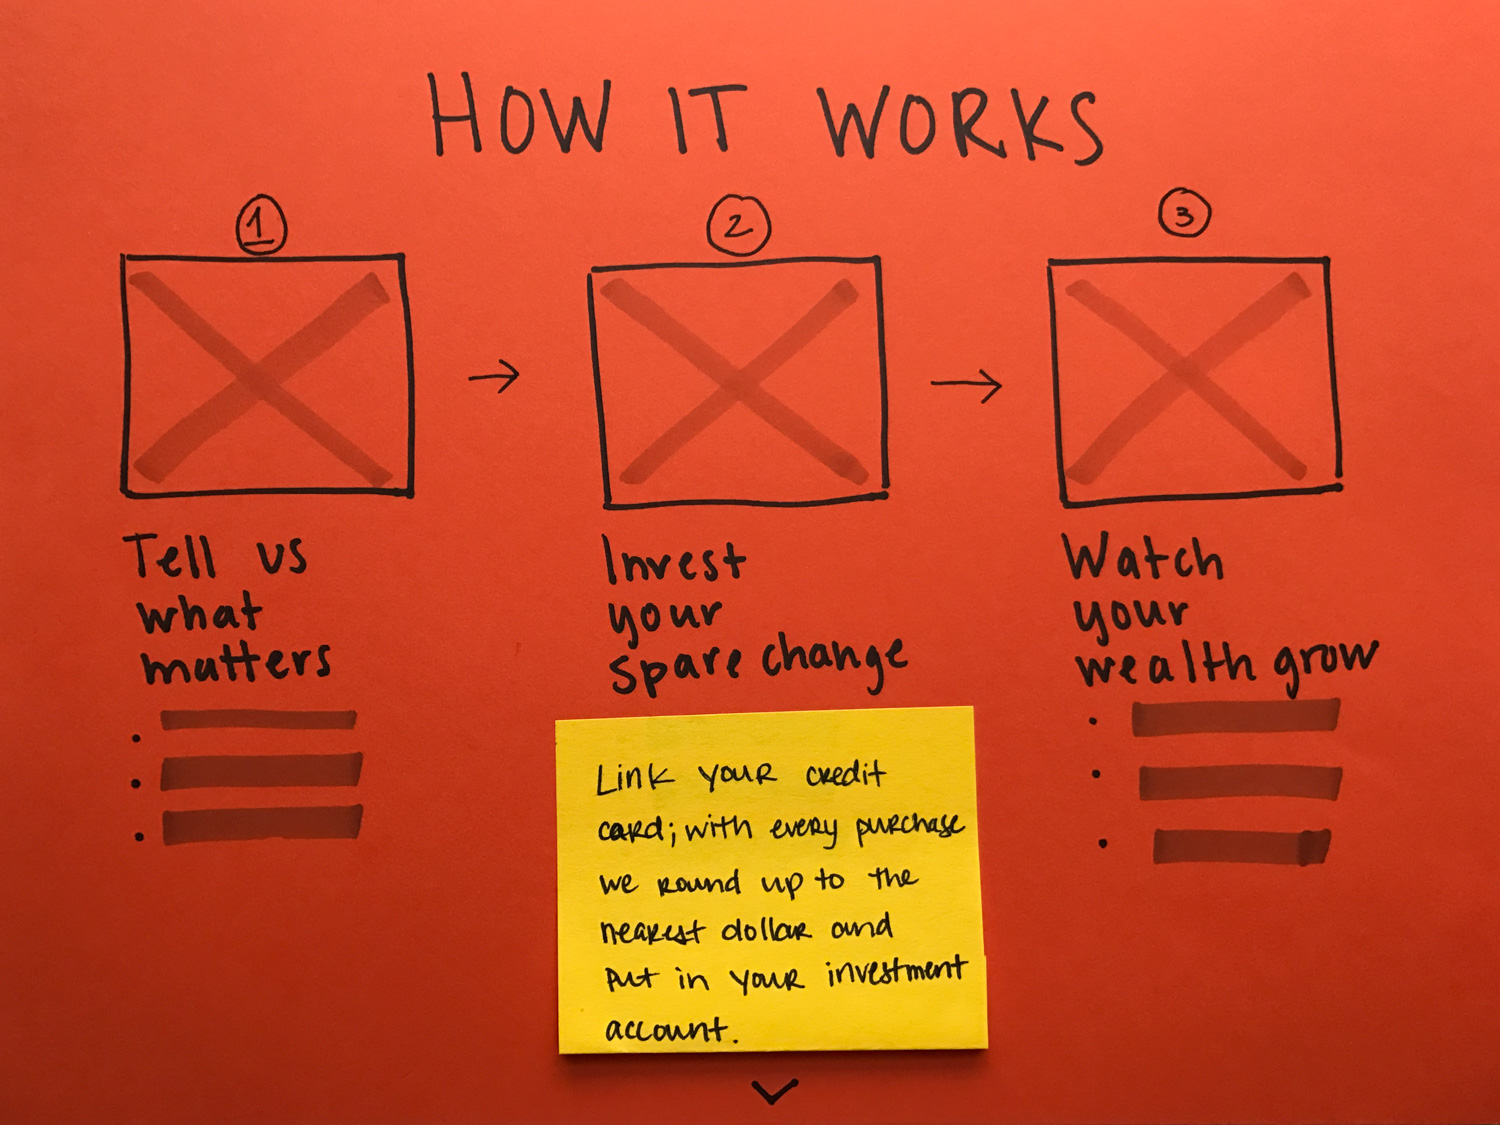 HOW IT WORKS
1
2
3
Tell us
what
matters
Invest
your
spare change
Watch
your
wealth grow
Link your credit
card; with every purchase
we round up to the
nearest dollar and
put in your investment
account.